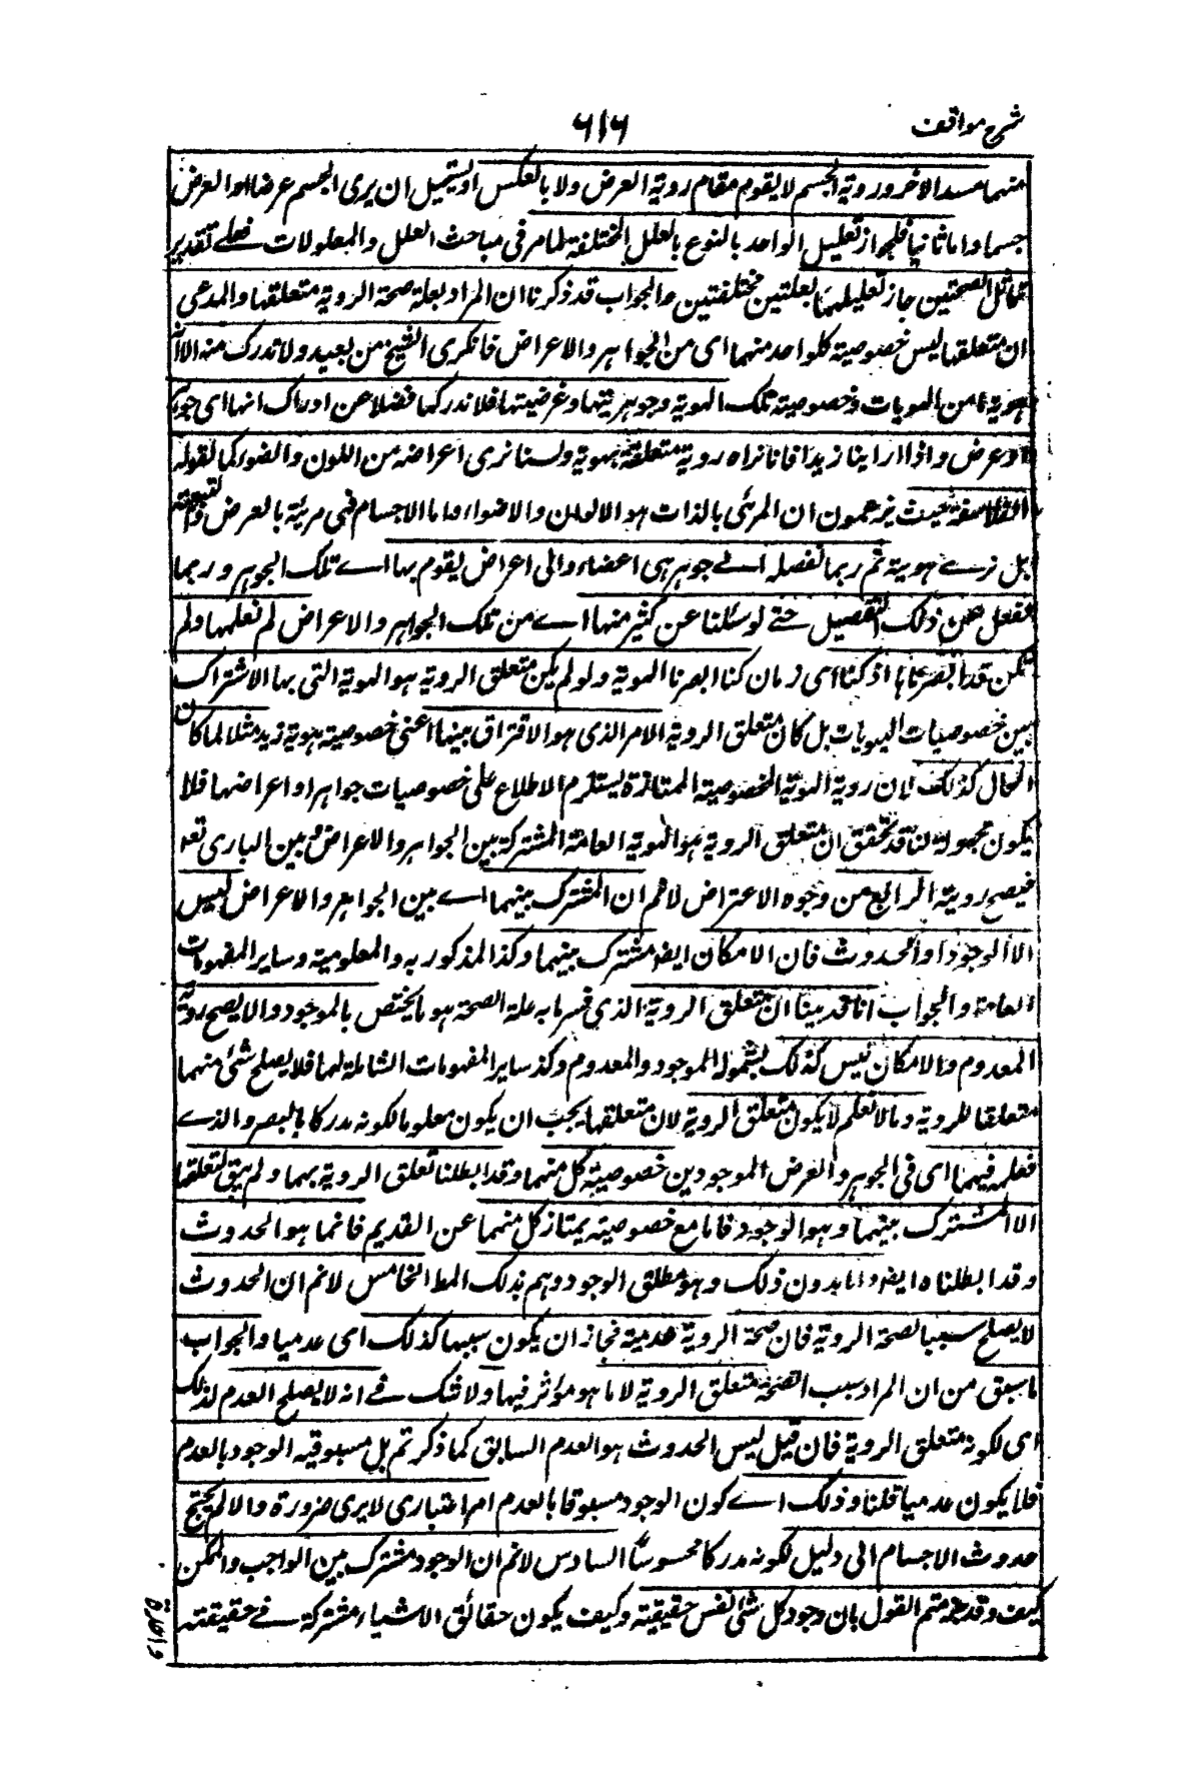 شرح مواقف
٦١٦
منهما مسد الاخر وروية الجسم لا يقوم مقام روية العرض ولا بالعكس او يستحيل ان يرى الجسم عرضا والعرض
جسما واما ثانيا فلجواز تعليل الواحد بالنوع بالعلل المختلفة لما مر فى مباحث العلل والمعلولات فعلے تقدير
تماثل الصحتين جاز تعليلهما بعلتين مختلفتين والجواب قد ذكرنا ان المراد بعلة صحة الروية متعلقها والمدعى
ان متعلقها ليس خصوصية كلواحد منهما اى من الجواهر والاعراض فانا نرى الشبح من بعيد ولا ندرك منه الا انه
هوية ما من الهويات وخصوصية تلك الهوية وجوهريتها وعرضيتها فلا ندركها فضلا عن ادراك انها اى جواهر
او عرض واذا راينا زيدا فانا نراه روية متعلقة بهوية ولسنا نرى اعراضه من اللون والضوء كما تقوله
الفلاسفة حيث يزعمون ان المرئى بالذات هو الالوان والاضواء واما الاجسام فهى مرئية بالعرض
بل نرے هوية ثم ربما نفصله الے جوهر هى اعضاء والى اعراض يقوم بها اے تلك الجوهر وربما
نغفل عن ذلك التفصيل حتے لو سئلنا عن كثير منها اے من تلك الجواهر والاعراض لم نعلمها ولم
نكن قد ابصرناها اذ كنا اى زمان كنا ابصرنا الهوية ولو لم يكن متعلق الروية هو الهوية التى بها الاشتراك
بين خصوصيات الهويات بل كان متعلق الروية الامر الذى هو الافتراق بينهما اعنى خصوصية هوية زيد مثلا لما كان
الحال كذلك لان روية الهوية المخصوصية الممتازة يستلزم الاطلاع على خصوصيات جواهر او اعراضها فلا
يكون مجهولة لنا فقد تحقق ان متعلق الروية هو الهوية العامة المشتركة بين الجواهر والاعراض وبين البارى تعه
فيصح رويته الرابع من وجوه الاعتراض لا نم ان المشترك بينهما اے بين الجواهر والاعراض ليس
الا الوجود او الحدوث فان الامكان ايضا مشترك بينهما وكذا المذكوريه والمعلومية وساير المفهومات
العامة والجواب انا قد بينا ان متعلق الروية الذى فسرنا به علة الصحة هو ما يختص بالموجود والا لا يصح روية
المعدوم والامكان ليس كذلك لشموله الموجود والمعدوم وكذا ساير المفهومات الشاملة لهما فلا يصلح شئ منهما
متعلقا للروية وما لا نعلم لا يكون متعلق الروية لان متعلقها يجب ان يكون معلوما لكونه مدركا بالبصر والذے
نعلم فيهما اى فى الجوهر والعرض الموجودين خصوصية كل منهما وقد ابطلنا تعلق الروية بهما ولم يبق لتعلقها
الا المشترك بينهما وهو الوجود فاما مع خصوصية يمتاز كل منهما عن القديم فانما هو الحدوث
وقد ابطلناه ايضا واما بدون ذلك وهو مطلق الوجود وهم بذلك المط الخامس لا نم ان الحدوث
لا يصلح سببا لصحة الروية فان صحة الروية عدمية فجاز ان يكون سببها كذلك اى عدميا والجواب
ما سبق من ان المراد بسبب الصحة متعلق الروية لا ما هو مؤثر فيها ولا شك فے انه لا يصلح العدم لذلك
اى لكونه متعلق الروية فان قيل ليس الحدوث هو العدم السابق كما ذكرتم بل مسبوقية الوجود بالعدم
فلا يكون عدميا قلنا وذلك اے كون الوجود مسبوقا بالعدم امر اعتبارى لا يرى ضرورة والا لم يحتج
حدوث الاجسام الى دليل لكونه مدركا محسوسا السادس لا نم ان الوجود مشترك بين الواجب والممكن
كيف وقد جزمتم القول بان وجود كل شئ نفس حقيقيته وكيف يكون حقائق الاشياء مشتركة فے حقيقته